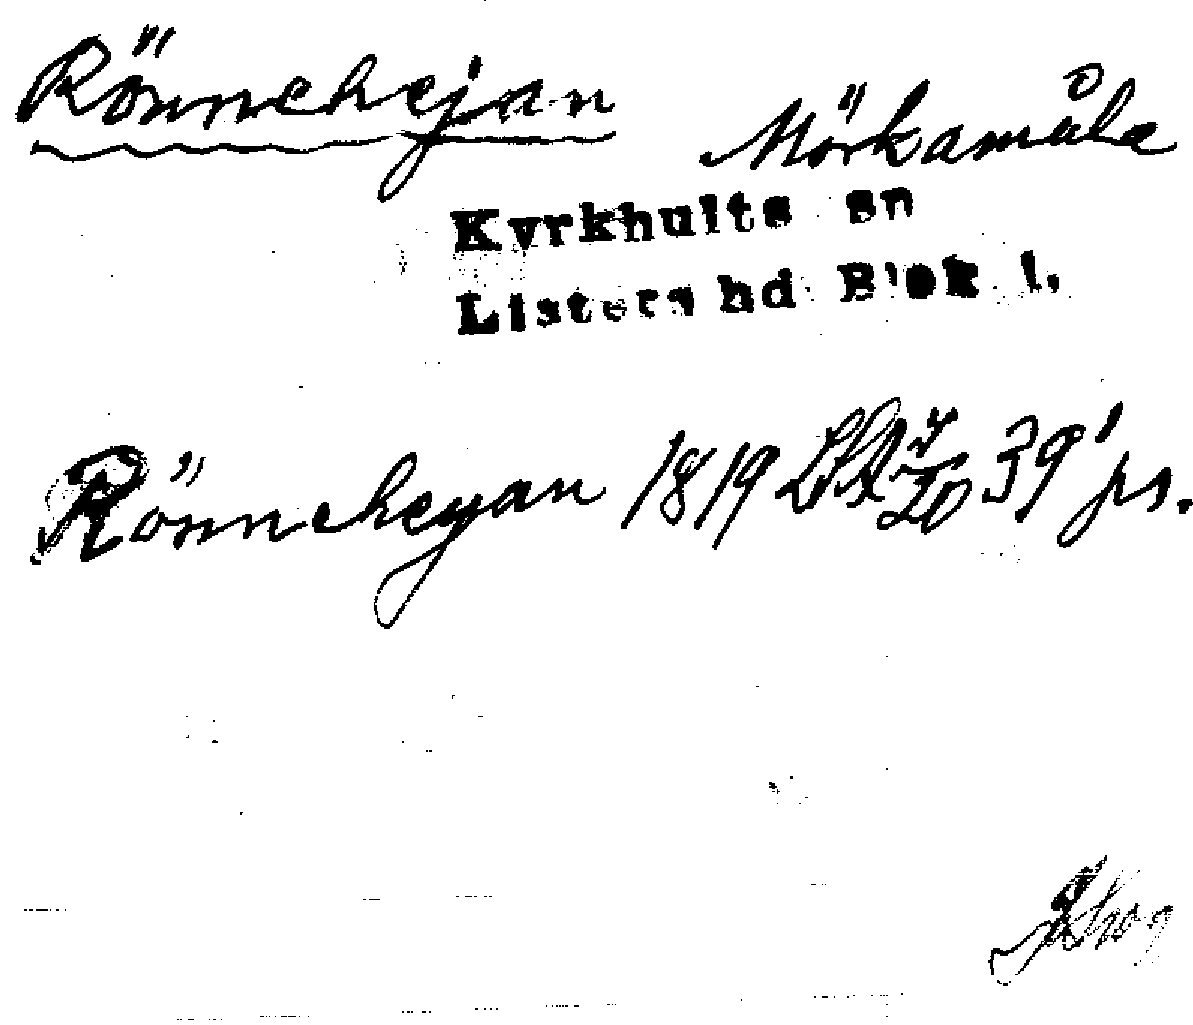 Rönnehejan
Mörkamåla
Kyrkhults sn
Listers hd Blek l.
Rönneheyan 1819 39 ps.